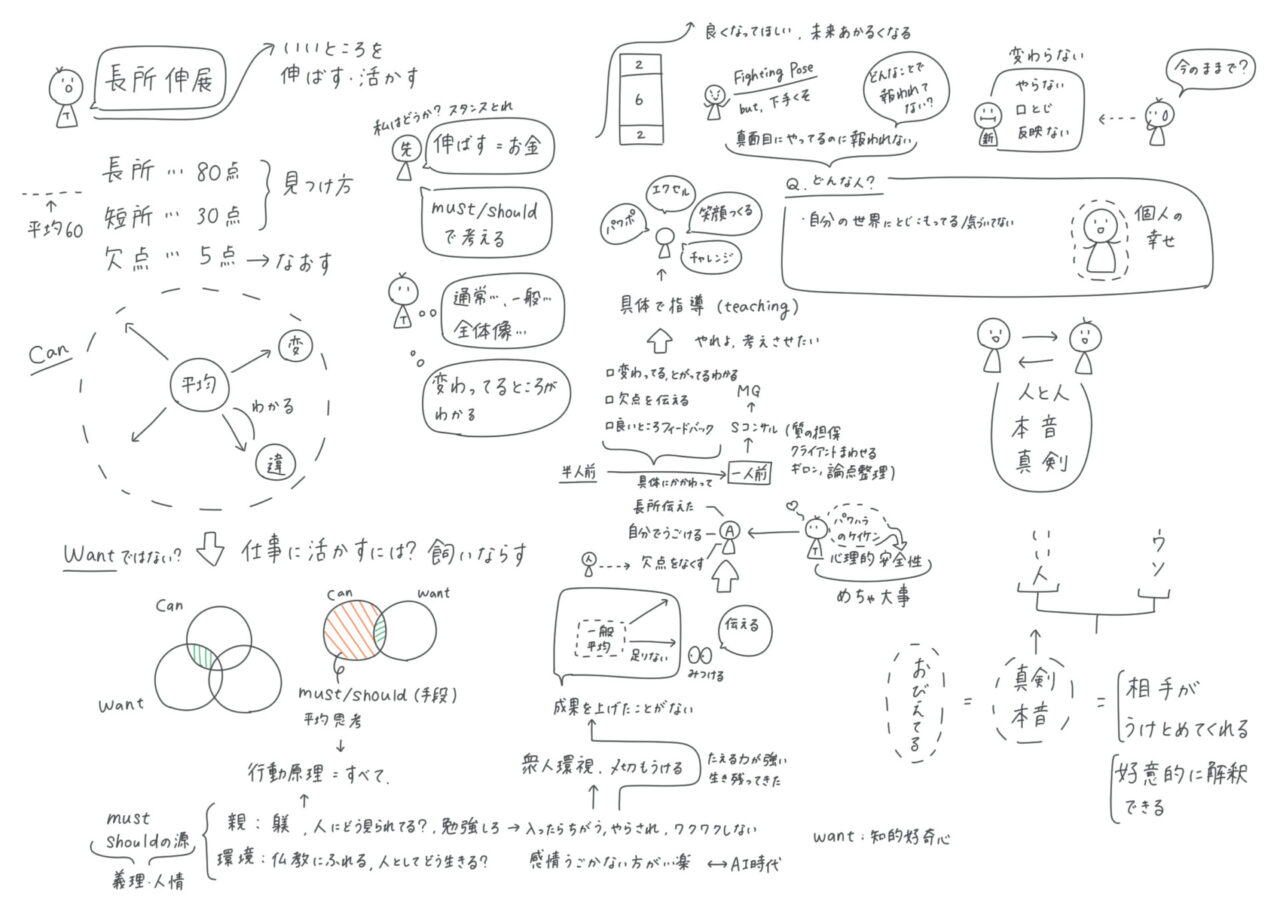 長所伸展
いいところを
伸ばす・活かす
T
長所…80点
短所…30点
欠点…5点→なおす
平均60
見つけ方
Can
平均
変
わかる
違
私はどうか?スタンスとれ
先
伸ばす=お金
must/should
で考える
T
通常…、一般…
全体像…
変わってるところが
わかる
Wantではない?
仕事に活かすには?飼いならす
Can
Want
Can
want
must/should(手段)
平均思考
行動原理=すべて.
must
shouldの源
義理・人情
親:躾,人にどう見られてる?,勉強しろ→入ったらちがう,やらされ,ワクワクしない
環境:仏教にふれる,人としてどう生きる?
感情うごかない方がい楽 ↔AI時代
良くなってほしい,未来あかるくなる
2
6
2
Fighting Pose
but,下手くそ
どんなことで
報われて
ない?
真面目にやってるのに報われない
変わらない
新
やらない
口とじ
反映ない
今のままで?
Q.どんな人?
・自分の世界にとじこもってる/気づいてない
個人の
幸せ
エクセル
パワポ
笑顔つくる
チャレンジ
具体で指導(teaching)
やれよ,考えさせたい
□変わってる,とがってるわかる
□欠点を伝える
□良いところフィードバック
MG
Sコンサル
(質の担保
クライアントまわせる
ギロン,論点整理)
半人前
具体にかかわって
一人前
長所伝えた
自分でうごける
欠点をなくす
A
A
T
パワハラ
のケイケン
心理的安全性
めちゃ大事
一般
平均
足りない
みつける
伝える
成果を上げたことがない
衆人環視.〆切もうける
たえる力が強い
生き残ってきた
人と人
本音
真剣
いい人
ウソ
おびえてる
=
真剣
本音
=
相手が
うけとめてくれる
好意的に解釈
できる
want:知的好奇心